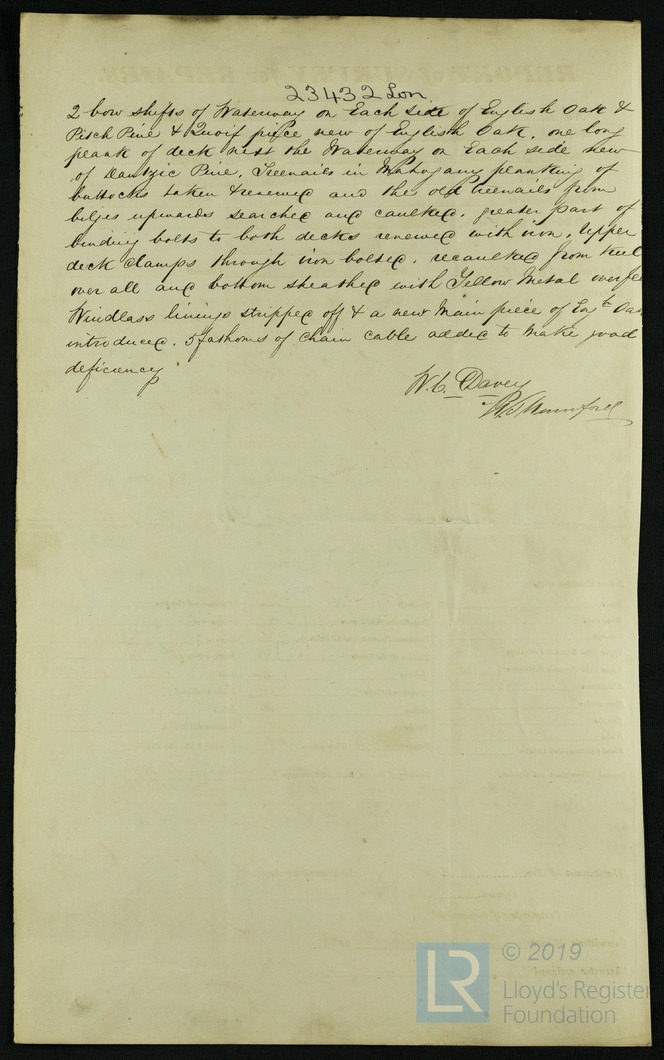 23432 Lon
2 bow shifts of Waterway on Each side of English Oak &
Pitch Pine & piece new of English Oak, one long
plank of deck next the Waterway on Each side new
of Dantzic Pine, Treenails in Mahogany planking of
buttocks taken & renewed and the old treenails from
bilges upwards searched and caulked, greater part of
binding bolts to both decks renewed with iron, Upper
deck clamps through iron bolted, recaulked from keel
over all and bottom sheathed with Yellow Metal over
Windlass linings stripped off & a new Main piece of Engh Oak
introduced. 5 fathoms of chain cable added to make good
deficiency
W. C. Davey
© 2019
LR
Lloyd's Register
Foundation